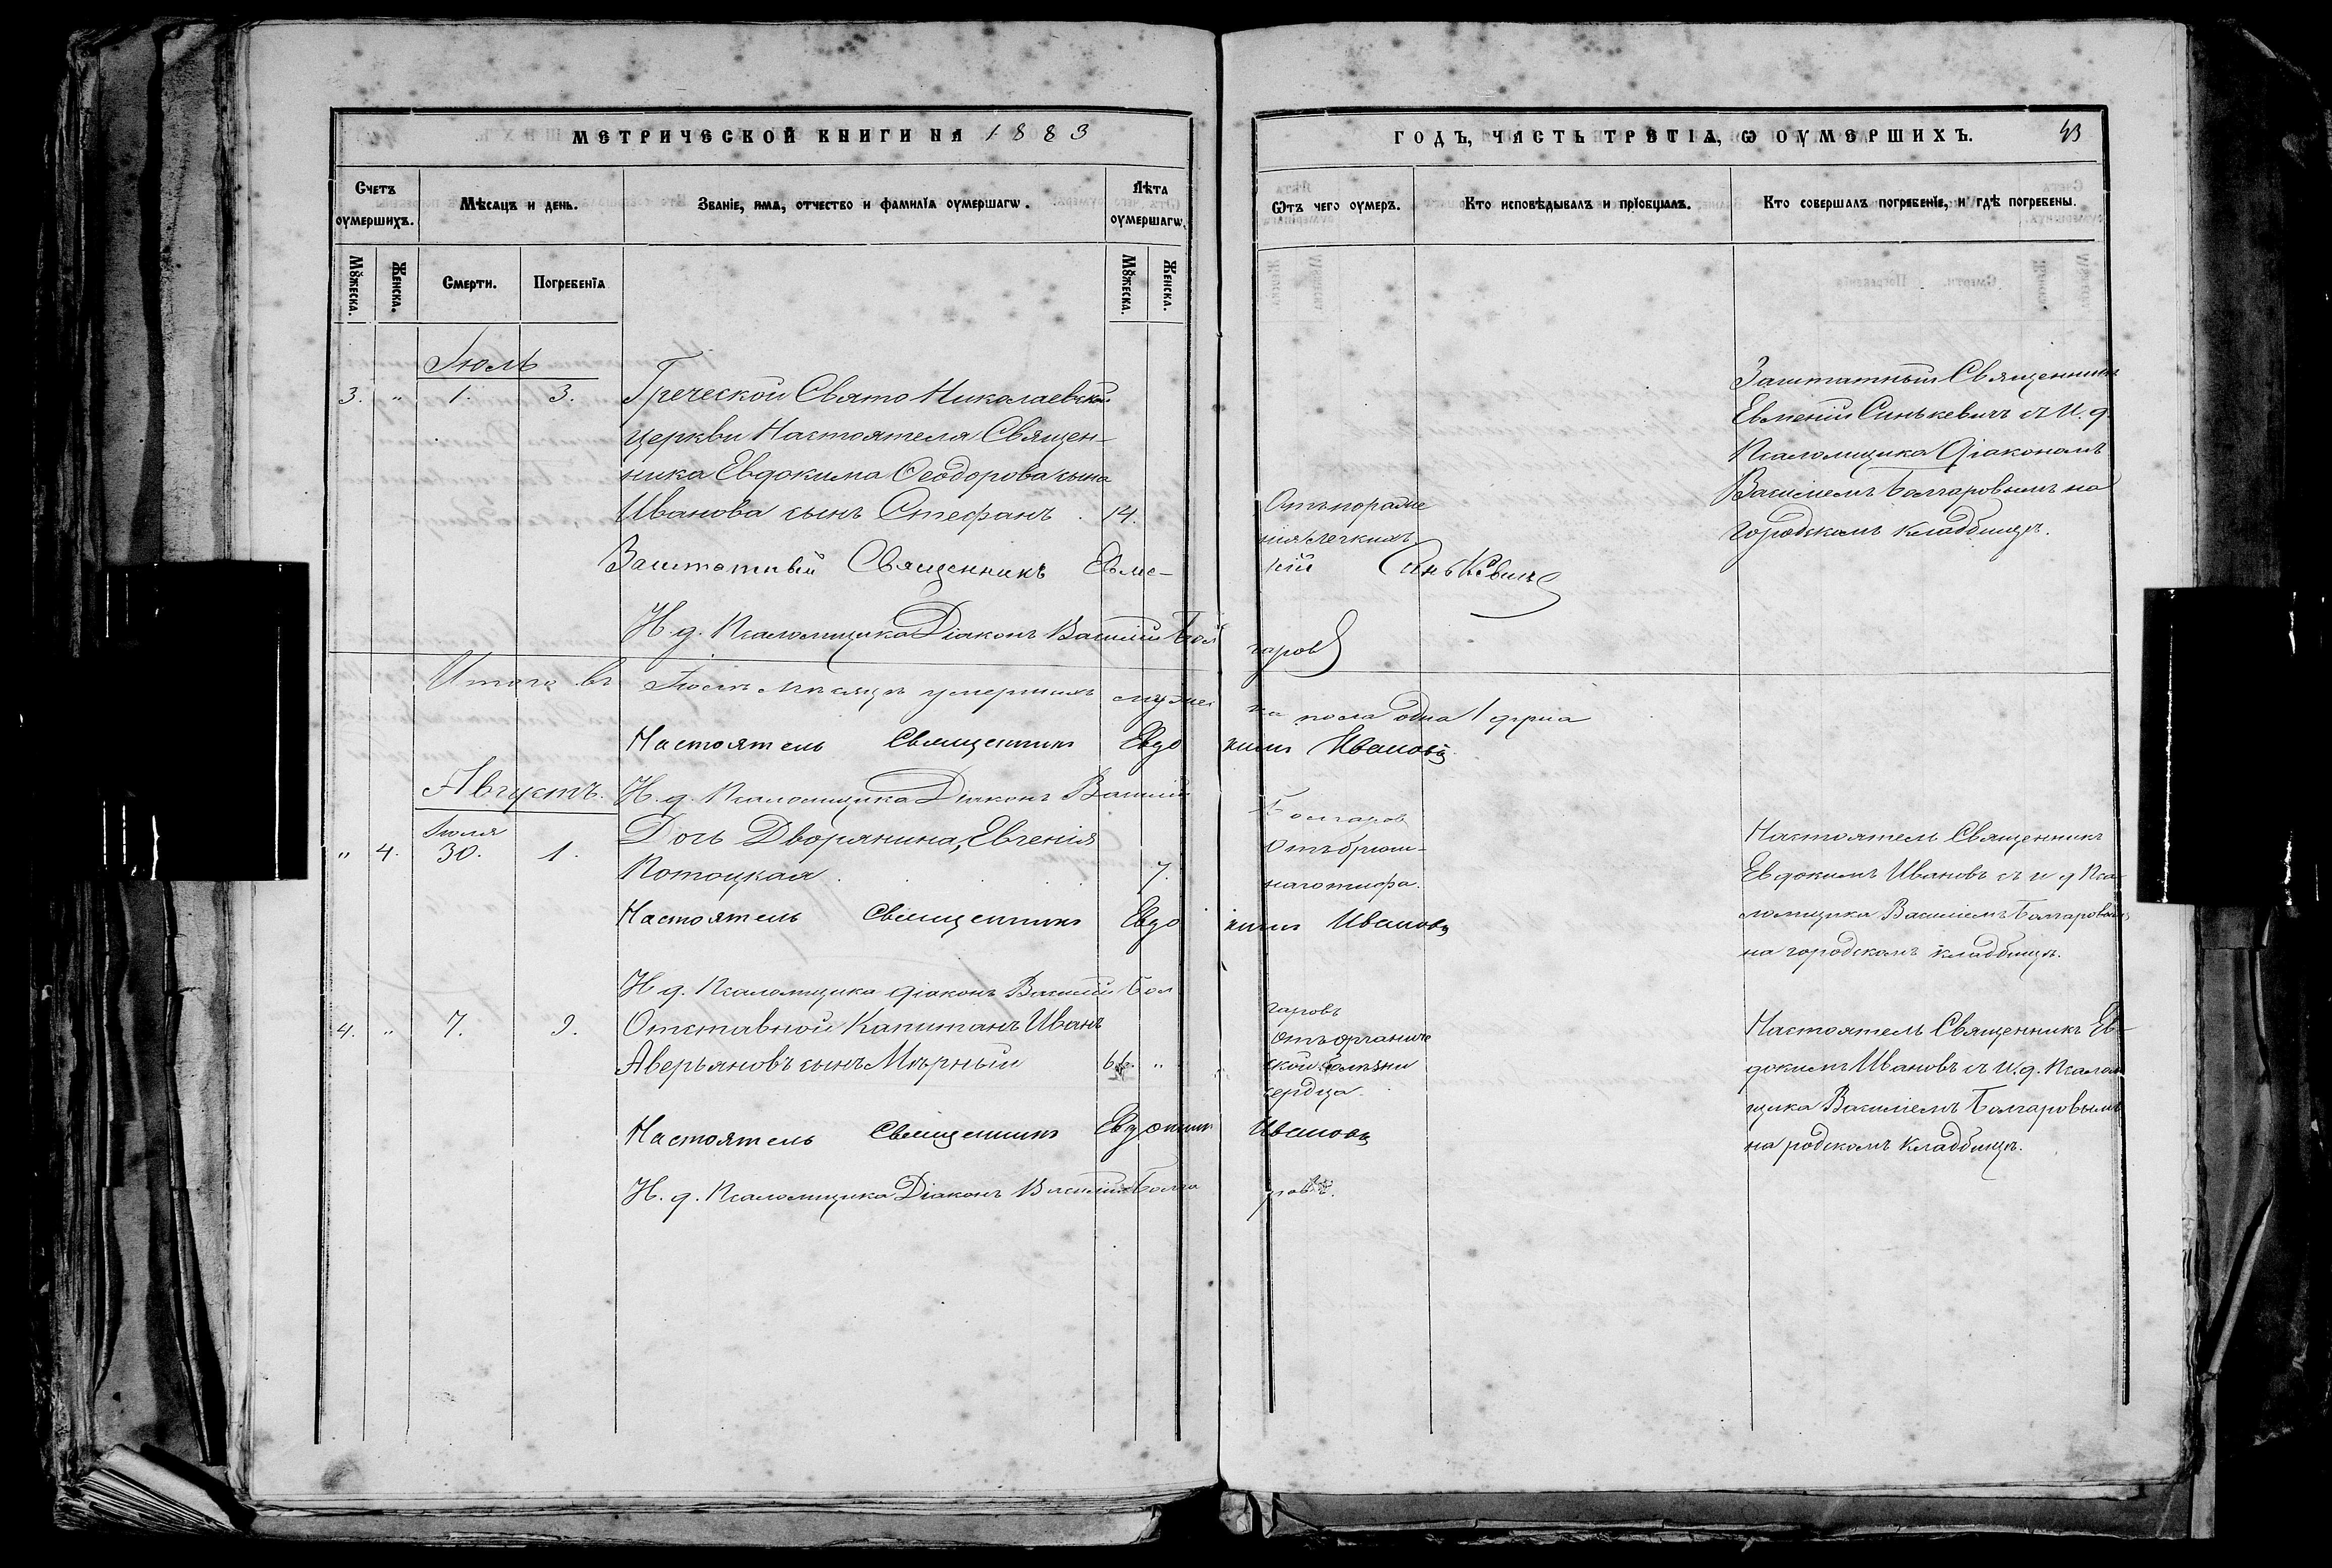 МЕТРИЧЕСКОЙ КНИГИ НА 1883
ГОДЪ, ЧАСТЬ ТРЕТІА, Ѡ ОУМЕРШИХЪ. 43
Счетъ оумершихъ.
Мѣсацъ и день.
Званіе, има, отчество и фамиліа оумершагѡ.
Лѣта оумершагѡ.
Ѿтъ чего оумеръ.
Кто исповѣдывалъ и пріобщалъ.
Кто совершалъ погребеніе, и гдѣ погребены.
Мꙋжеска.
Женска.
Смерти.
Погребеніа
Мꙋжеска.
Женска.
Іюль
3. " 1. 3.
Греческой Свято Николаевской
церкви Настоятеля Священ-
ника Евдокима Ѳеодорова сына
Иванова сынъ Стефанъ . 14.
Отъ пораже
нія легкихъ
Заштатный Священникъ
Евмений Синькевичъ съ И. д.
Псаломщика Діакономъ
Василіемъ Болгаровымъ на
городскомъ кладбищѣ.
Заштатный Священникъ Евме-
ній Синькевичъ
И. д. Псаломщика Діаконъ Василій Бол
гаровъ
Итого въ Іюлѣ мѣсяцѣ умершихъ мужес
ка пола одна 1 душа
Настоятель Священникъ Евдо
кимъ Ивановъ
Августъ.
И. д. Псаломщика Діаконъ Василій
Болгаровъ
" 4. Іюля 30. 1.
Дочь Дворянина, Евгенія
Потоцкая . . . 7.
Отъ брюш-
наго тифа.
Настоятель Священникъ
Евдокимъ Ивановъ съ и д Пса-
ломщика Василіемъ Болгаровымъ
на городскомъ кладбищѣ.
Настоятель Священникъ Евдо
кимъ Ивановъ
И д. Псаломщика діаконъ Василій Бол
гаровъ
4. " 7. 9.
Отставной Капитанъ Иванъ
Аверьяновъ сынъ Мѣрный 66. "
отъ органиче
ской болѣзни
сердца.
Настоятель Священникъ Ев-
докимъ Ивановъ съ И. д. Псалом
щика Василіемъ Болгаровымъ
на родскомъ кладбищѣ.
Настоятель Священникъ Евдокимъ
Ивановъ
И. д. Псаломщика Діаконъ Василій Болга
ровъ.